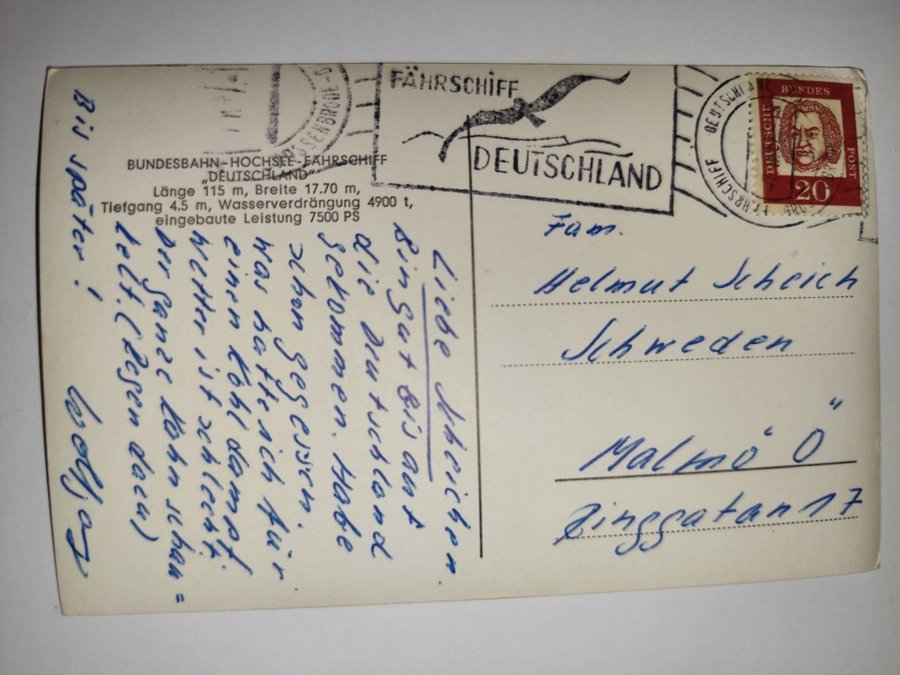 FÄHRSCHIFF
DEUTSCHLAND
BUNDESBAHN-HOCHSEE-FÄHRSCHIFF
„DEUTSCHLAND"
Länge 115 m, Breite 17.70 m,
Tiefgang 4.5 m, Wasserverdrängung 4900 t,
eingebaute Leistung 7500 PS
DEUTSCHE
BUNDES
POST
20
DEUTSCHLAND
FÄHRSCHIFF
Liebe Scheichen.
Bin gut bis auf
die Deutschland
gekommen. Habe
schon gegessen.
Was hatte ich für
einen Kohldampf.
Wetter ist schlecht.
Der ganze Kahn schau=
kelt. (Regen dazu)
Bis später!
Wolfgang
Fam.
Helmut Scheich
Schweden
Malmö "Ö"
Ringgatan 17